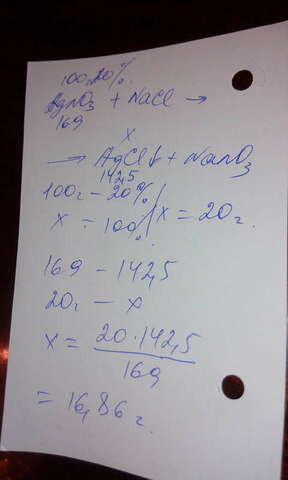 100г 20%.
AgNO₃ + NaCl →
169
x
→ AgCl↓ + NaNO₃
142,5
100г – 20%
x – 100% x = 20г.
169 – 142,5
20г – x
x = 20·142,5
169
= 16,86г.